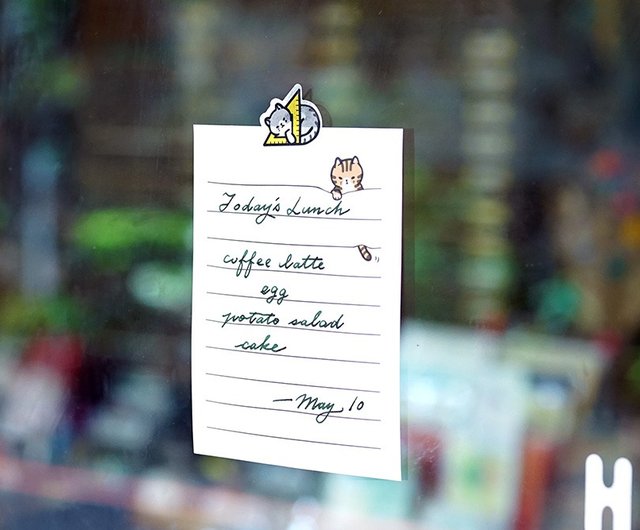 Today's Lunch
coffee latte
egg
potato salad
cake
—May 10
H